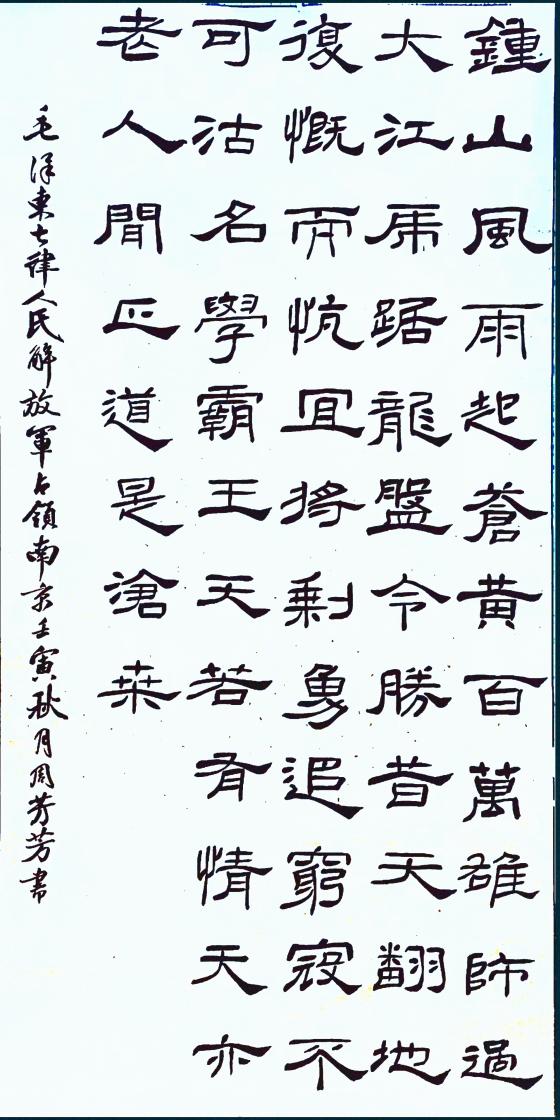 鍾山風雨起蒼黃百萬雄師過
大江虎踞龍盤今勝昔天翻地
復慨而慷宜將剩勇追窮寇不
可沽名學霸王天若有情天亦
老人間正道是滄桑
毛泽東七律人民解放軍占領南京壬寅秋月周芳芳書